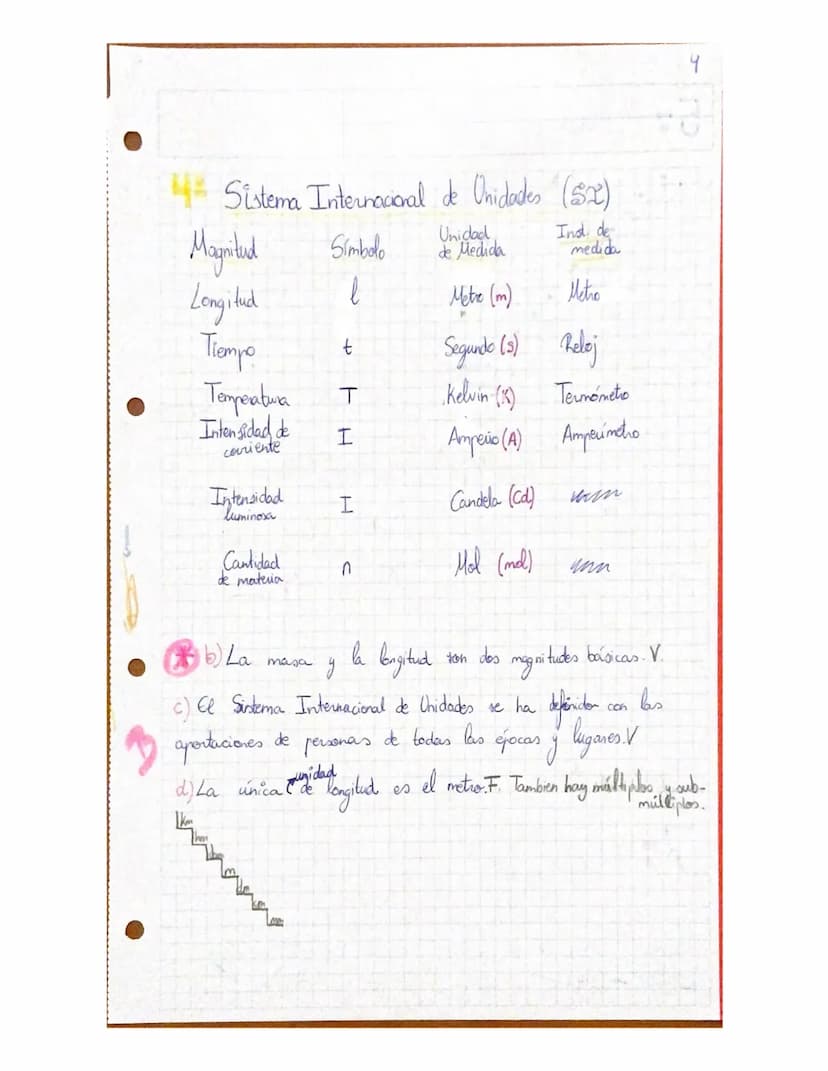 4
4º Sistema Internacional de Unidades (SI)
Magnitud Símbolo Unidad de Medida Inst. de medida
Longitud l Metro (m) Metro
Tiempo t Segundo (s) Reloj
Temperatura T Kelvin (K) Termómetro
Intensidad de corriente I Amperio (A) Amperímetro
Intensidad luminosa I Candela (Cd)
Cantidad de materia n Mol (mol)
* b) La masa y la longitud son dos magnitudes básicas. V.
c) El Sistema Internacional de Unidades se ha definido con las
aportaciones de personas de todas las épocas y lugares. V
d) La única unidad de longitud es el metro. F. Tambien hay múltiplos y sub-
múltiplos.
km
hm
dam
m
dm
cm
mm